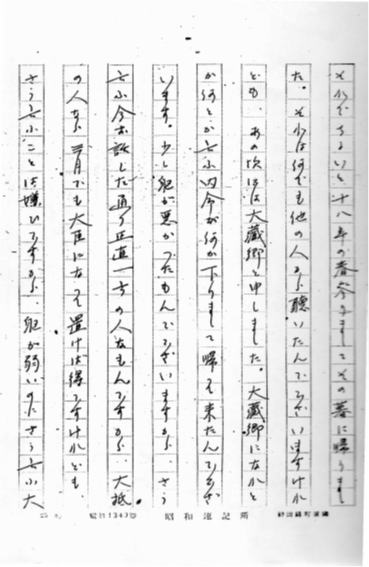 それでちよいと、十八年の春参りましてその暮に帰りまし
た。それは何でも他の人から聴いたんでございますけれ
ども、あの頃は大蔵卿と申しました。大蔵卿になれと
か何とか云ふ内命が何か下りまして帰て来たんでござ
います。少し気が悪かつたもんでございますから、さう
云ふ今お話した通り正直一方の人なもんですから、大抵
の人なら一月でも大臣になつて置けば得ですけれども、
さう云ふことは嫌ひですから、気が弱いのにさう云ふ大
昭和速記所